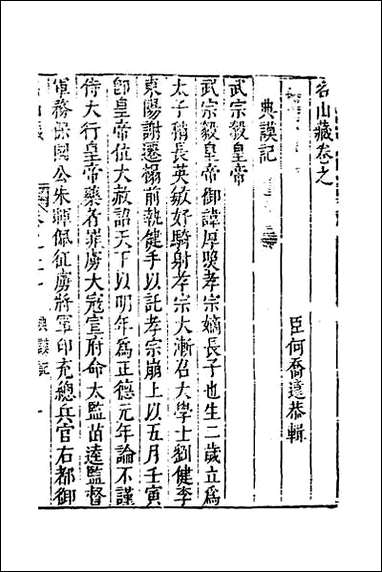 名山藏卷之
臣何喬遠恭輯
典謨記
武宗毅皇帝
武宗毅皇帝御諱厚㷖孝宗嫡長子也生二歲立爲
太子稍長英敏好騎射孝宗大漸召大學士劉健李
東陽謝遷榻前執健手以託孝宗崩上以五月壬寅
卽皇帝位大赦詔天下以明年爲正德元年論不謹
侍大行皇帝藥者罪虜大寇宣府命太監苗逵監督
軍務保國公朱暉佩征虜將軍印充總兵官右都御
典謨記